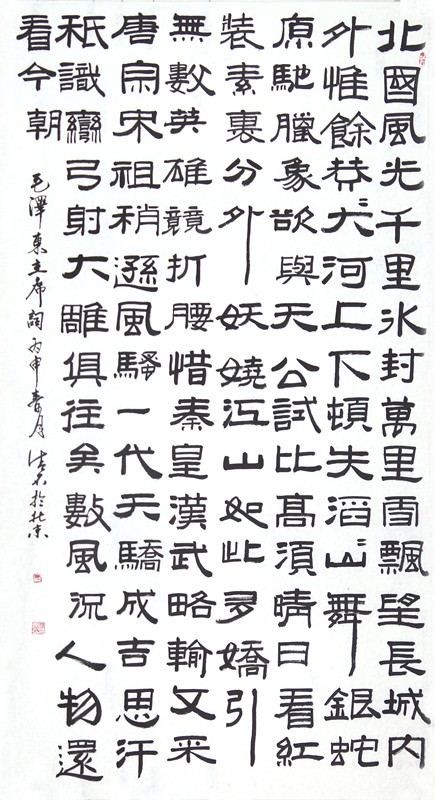 北國風光千里冰封萬里雪飄望長城內
外惟餘莽〻大河上下頓失滔〻山舞銀蛇
原馳臘象欲與天公試比高須晴日看紅
裝素裹分外妖嬈江山如此多嬌引
無數英雄競折腰惜秦皇漢武略輸文采
唐宗宋祖稍遜風騷一代天驕成吉思汗
祇識彎弓射大雕俱往矣數風流人物還
看今朝
毛澤東主席詞丙申春月於北京